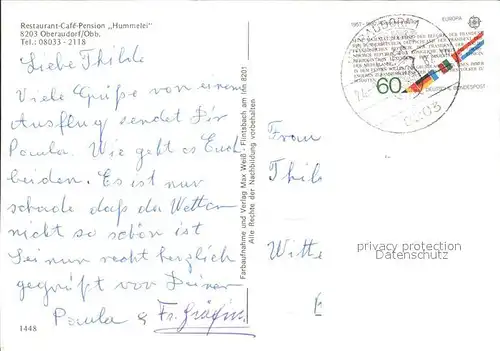 Restaurant-Café-Pension „Hummelei"
8203 Oberaudorf/Obb.
Tel.: 08033 - 2118
Liebe Thilde
Viele Grüße von einem
Ausflug sendet Dir
Paula. Wie geht es Euch
beiden. Es ist nur
schade daß das Wetter
nicht so schön ist
Sei nun recht herzlich
gegrüßt von Deiner
Paula &
1448
Farbaufnahme und Verlag Max Weiß - Flintsbach am Inn 8201
Alle Rechte der Nachbildung vorbehalten
EUROPA
60
DEUTSCHE BUNDESPOST
8203
Frau
Thil
Witte
privacy protection
Datenschutz